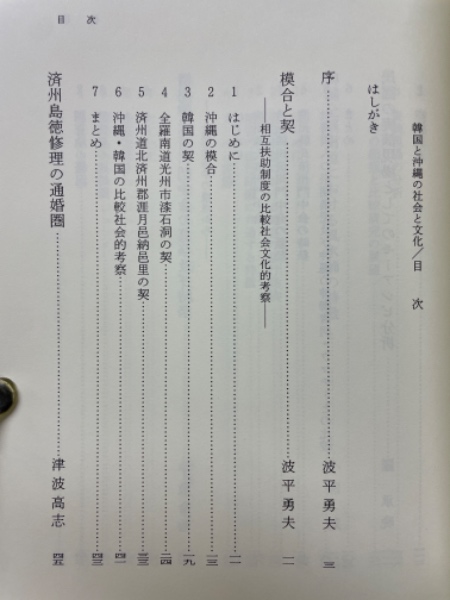 目 次
韓国と沖縄の社会と文化/目 次
はしがき
序………波平勇夫 三
模合と契………波平勇夫 一一
――相互扶助制度の比較社会文化的考察――
1 はじめに………一一
2 沖縄の模合………一三
3 韓国の契………一九
4 全羅南道光州市漆石洞の契………二四
5 済州道北済州郡涯月邑納邑里の契………三三
6 沖縄・韓国の比較社会的考察………四一
7 まとめ………四三
済州島徳修理の通婚圏………津波高志 四五